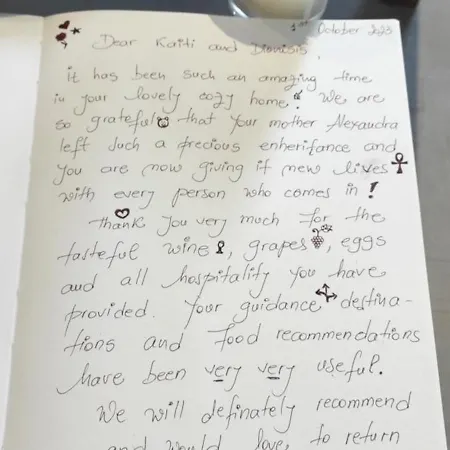 1st October 2023
Dear Kaiti and Dionisis,
it has been such an amazing time
in your lovely cozy home! We are
so grateful that your mother Alexandra
left such a precious enherifance and
you are now giving it new lives
with every person who comes in!
Thank you very much for the
tasteful wine, grapes, eggs
and all hospitality you have
provided. Your guidance destina-
tions and food recommendations
have been very very useful.
We will definately recommend
and would love to return